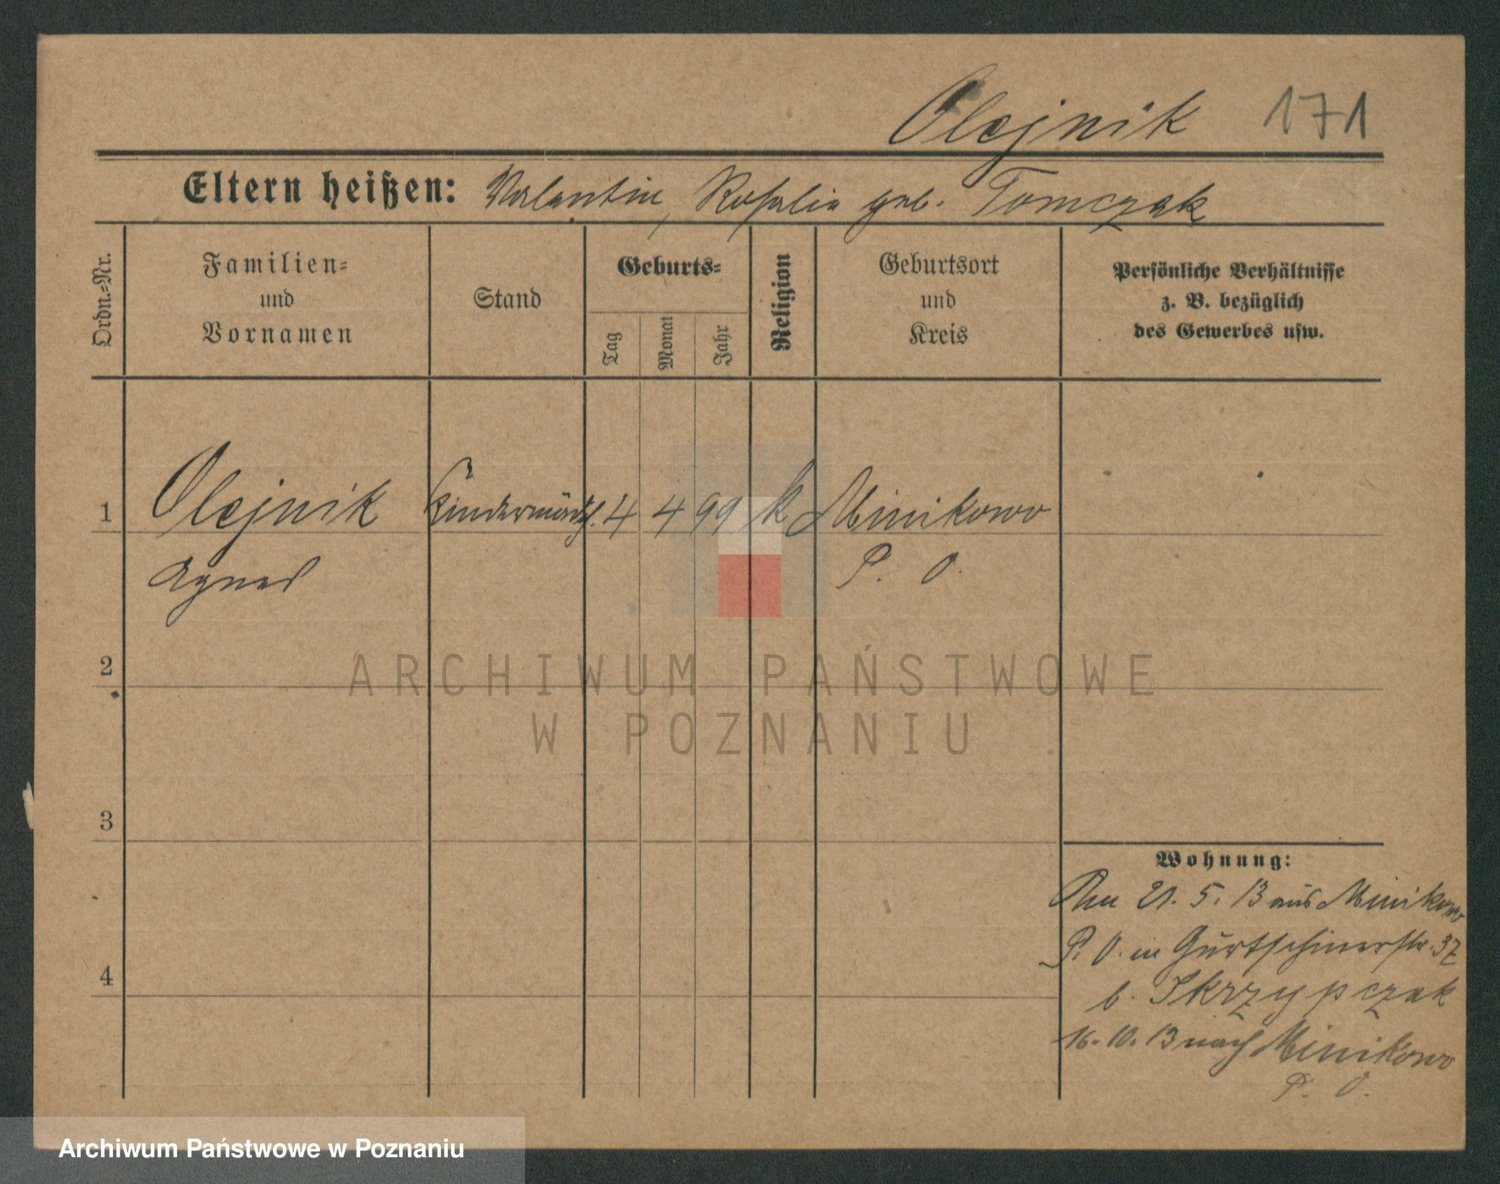 Olejnik 171
Eltern heißen: Valentin, Rosalie geb. Tomczak
Ordn.=Nr.
Familien=
und
Vornamen
Stand
Geburts=
Tag
Monat
Jahr
Religion
Geburtsort
und
Kreis
Persönliche Verhältnisse
z. B. bezüglich
des Gewerbes usw.
1 Olejnik Kindermädch. 4 4 99 k Minikowo
Agnes P. O.
2
3
4
Wohnung:
Am 21. 5. 13 aus Minikowo
P. O. in Gurtschinerstr. 37
b. Skrzypczak
16. 10. 13 nach Minikowo
P. O.
ARCHIWUM PAŃSTWOWE
W POZNANIU
Archiwum Państwowe w Poznaniu